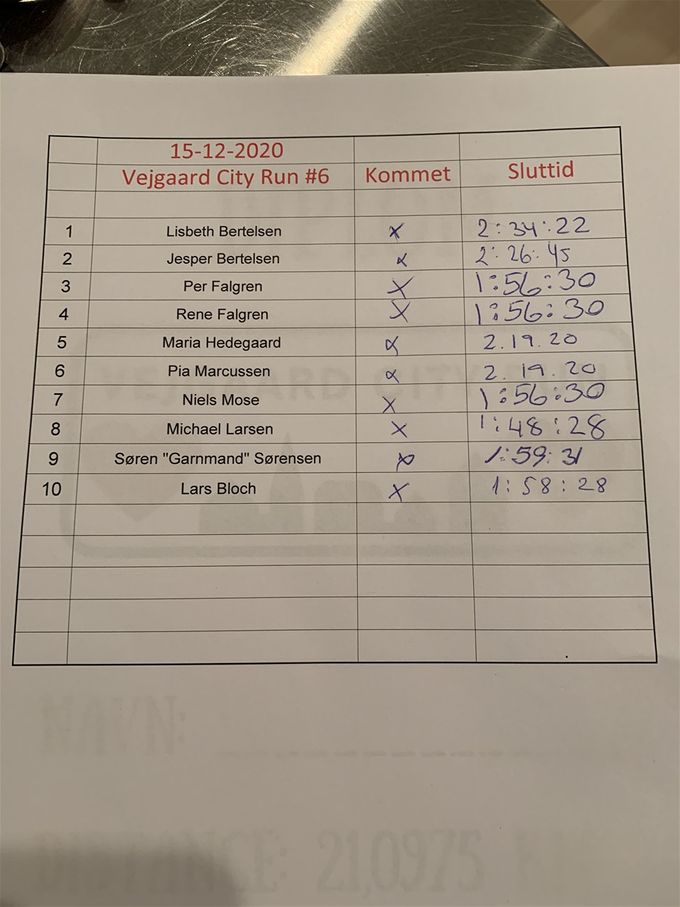 15-12-2020
Vejgaard City Run #6 Kommet Sluttid
1 Lisbeth Bertelsen x 2:34:22
2 Jesper Bertelsen x 2:26:45
3 Per Falgren x 1:56:30
4 Rene Falgren x 1:56:30
5 Maria Hedegaard x 2.19.20
6 Pia Marcussen x 2.19.20
7 Niels Mose x 1:56:30
8 Michael Larsen x 1:48:28
9 Søren "Garnmand" Sørensen x 1:59:31
10 Lars Bloch x 1:58:28
VEJGAARD CITY
NAVN:
DISTANCE: 21,0975